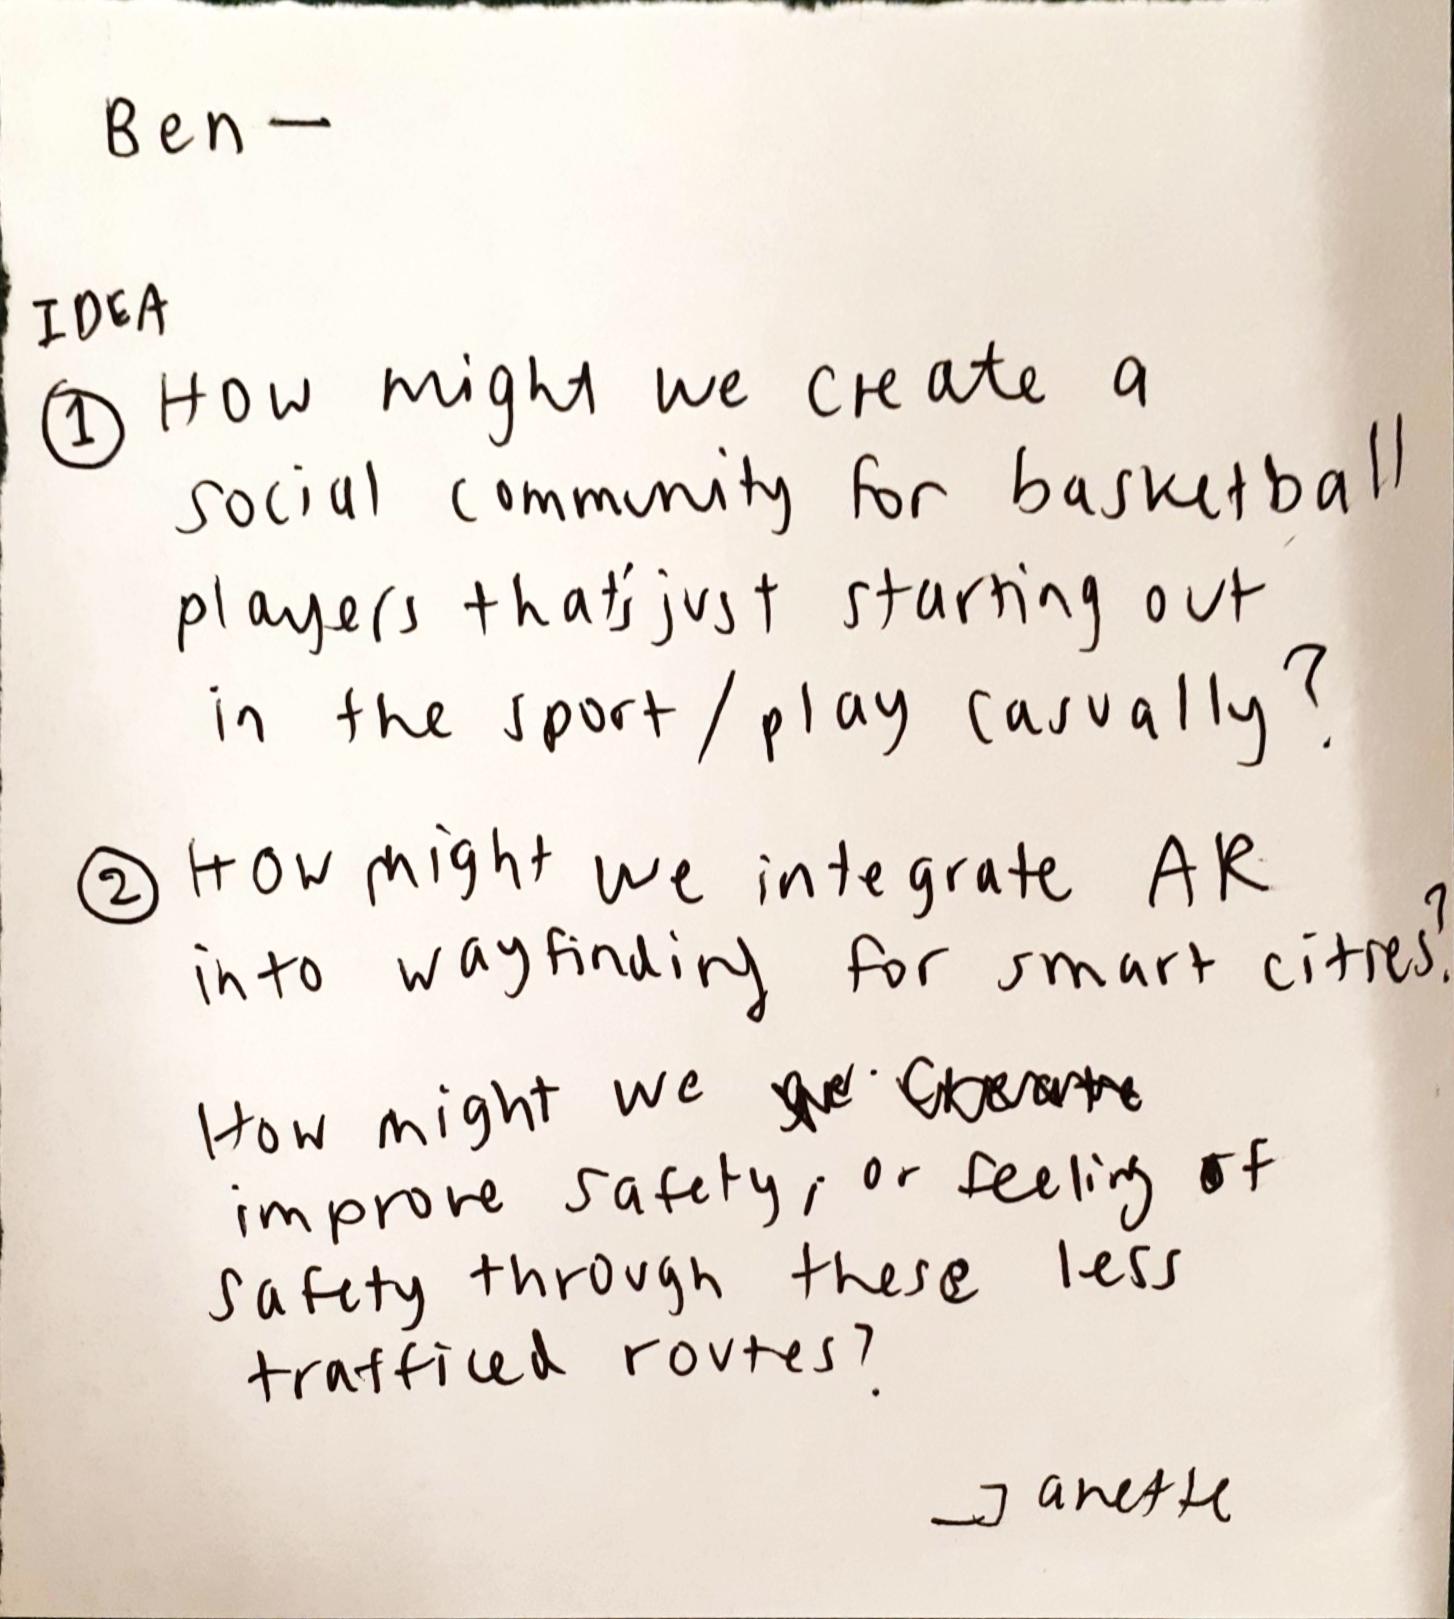 Ben —
IDEA
① How might we create a
social community for basketball
players that's just starting out
in the sport / play casually?
② How might we integrate AR
into wayfinding for smart cities?
How might we
improve safety, or feeling of
safety through these less
trafficed routes?
Janette